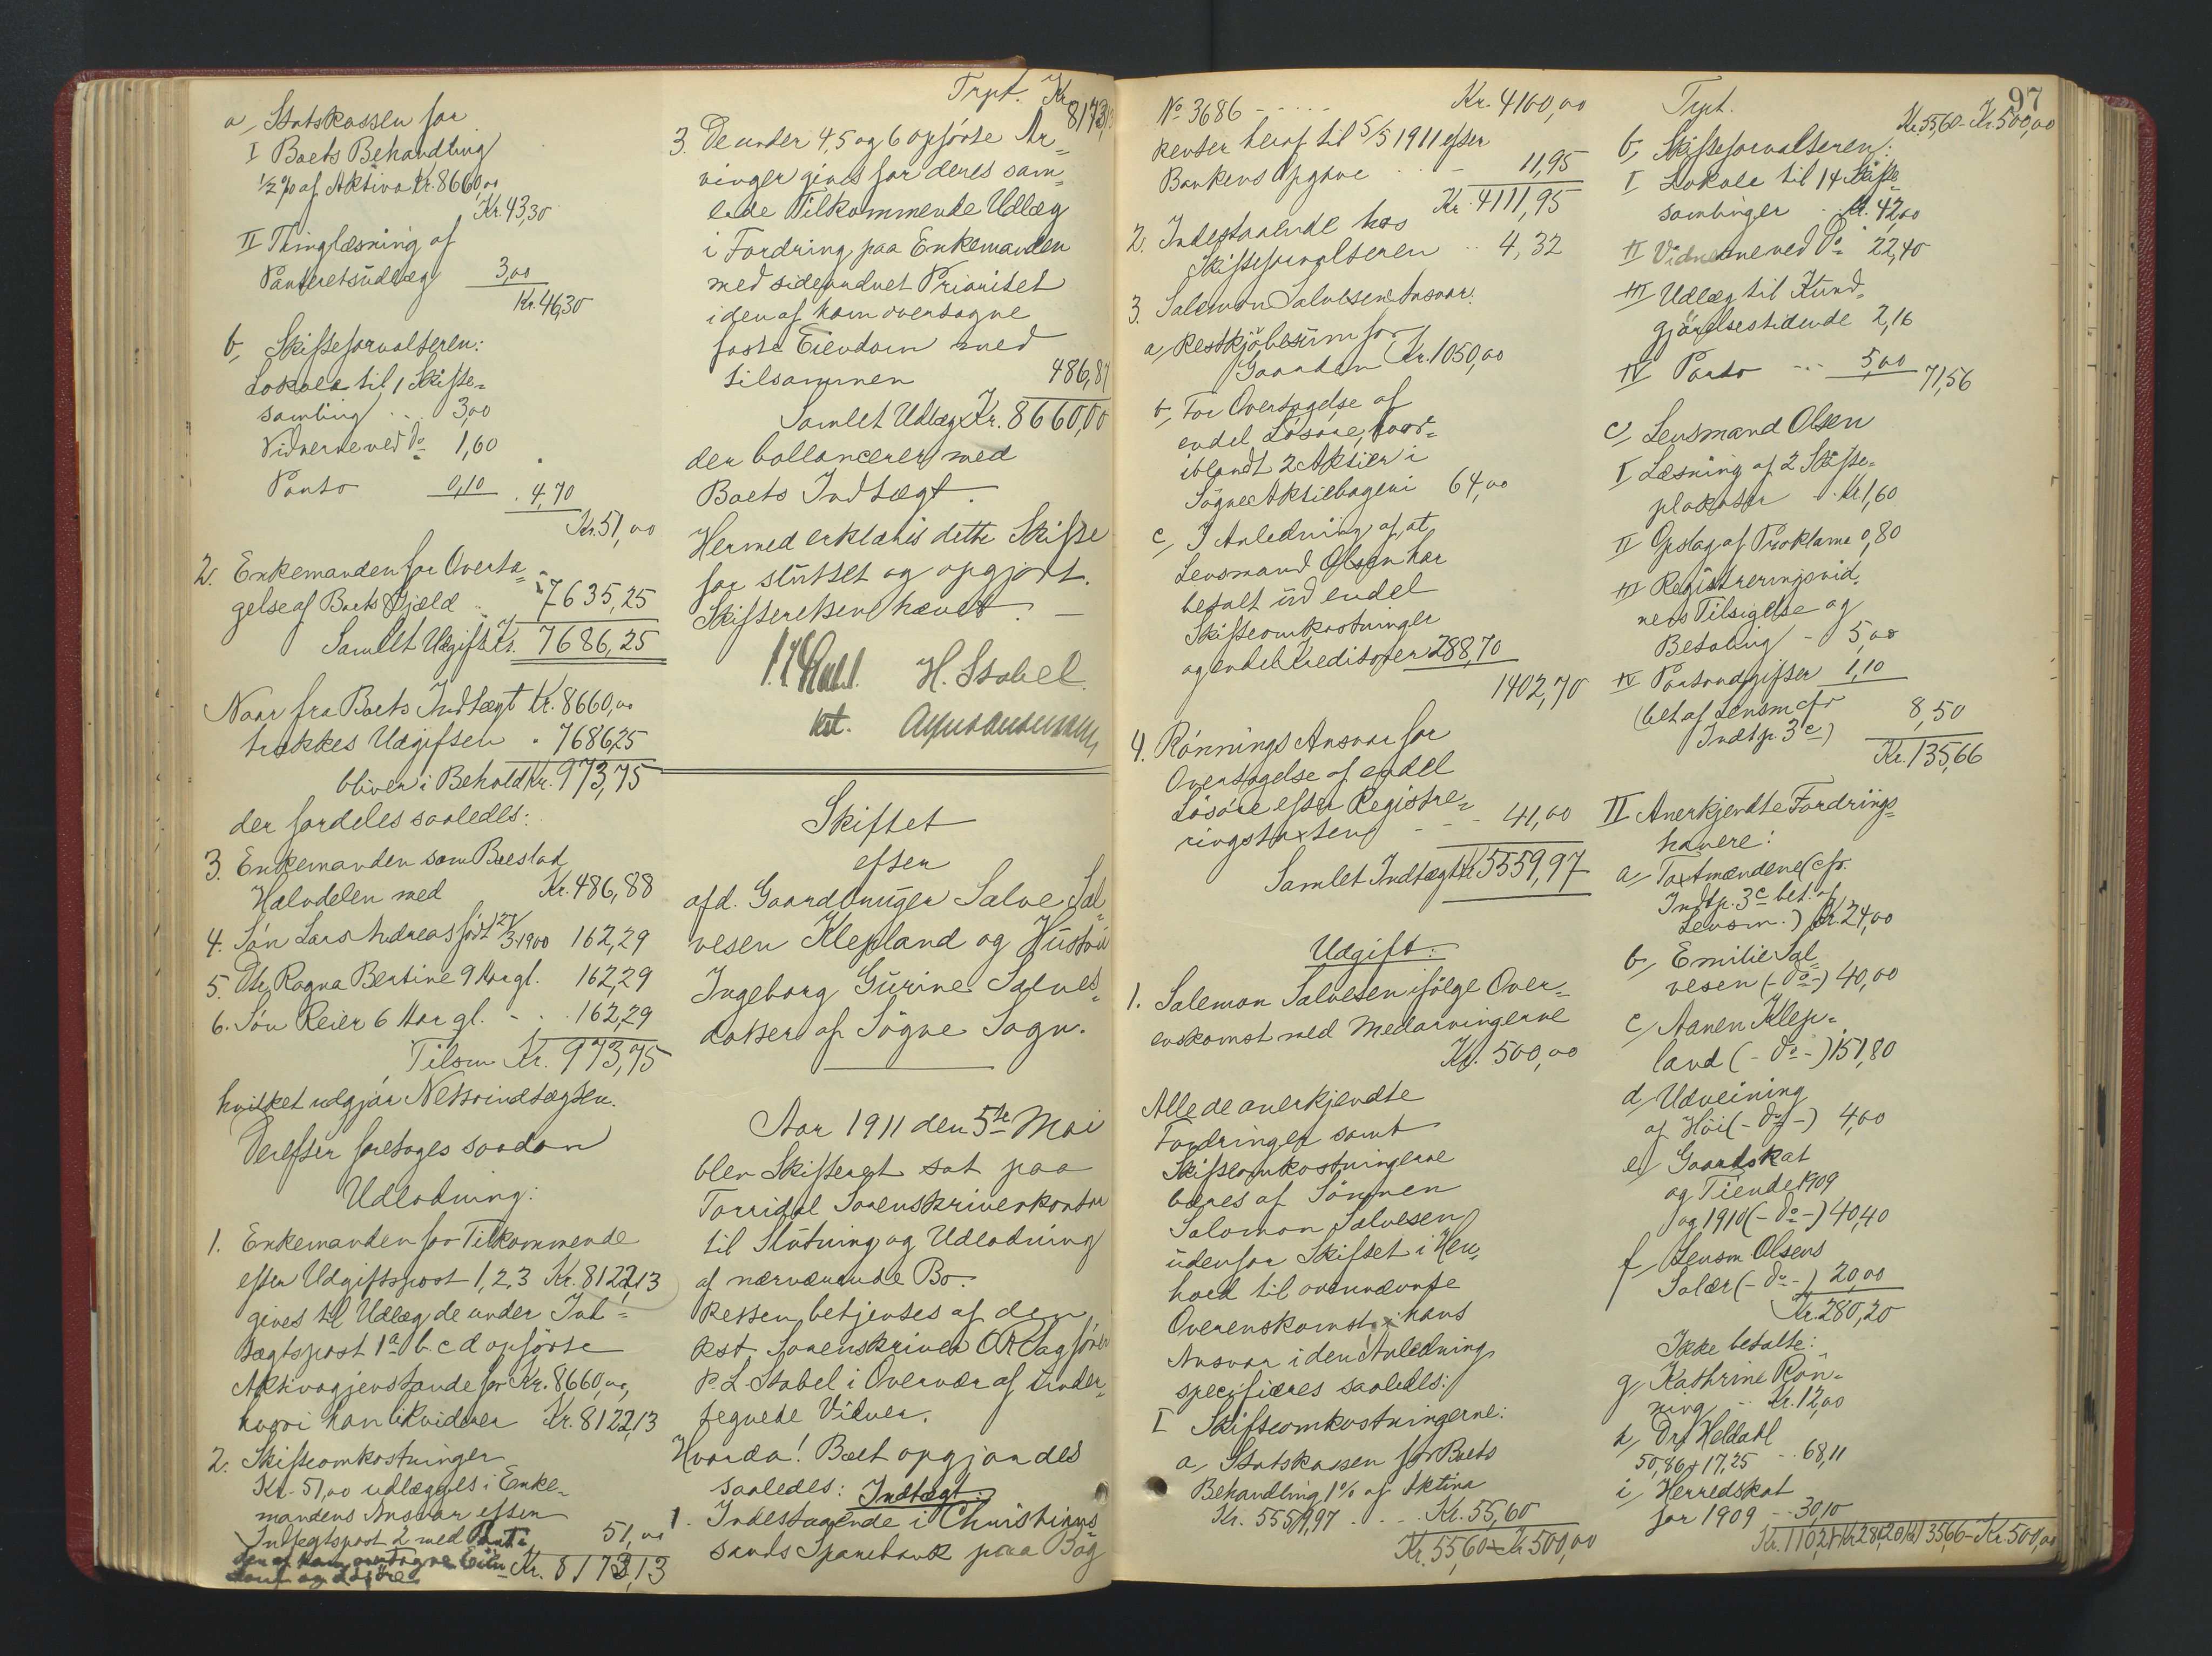 a, Statskassen for
I Boets Behandling
1/2 % af Aktiva Kr. 8660,00
Kr. 43,30
II Thinglæsning af
Panteretsudlæg 3,00
Kr. 46,30
b, Skifteforvalteren:
Lokale til 1 Skifte-
samling . . . 3,00
Vidnerne ved do 1,60
Porto 0,10 . 4,70
Kr. 51,00
2. Enkemanden for Overta-
gelse af Boets Gjæld . . " 7635,25
Samlet Udgift Kr. 7686,25
Naar fra Boets Indtægt Kr. 8660,00
trækkes Udgiften " 7686,25
bliver i Behold Kr. 973,75
der fordeles saaledes:
3. Enkemanden som Boeslod
Halvdelen med Kr. 486,88
4. Søn Lars Andreas født 21/3 1900 162,29
5. Dtr. Ragna Bertine 9 Aar gl. 162,29
6. Søn Reier 6 Aar gl. - . . 162,29
Tilsm. Kr. 973,75
hvilket udgjør Nettoindtægten.
Derefter foretages saadan
Udlodning:
1. Enkemanden for Tilkommende
efter Udgiftspost 1, 2, 3 Kr. 8122,13
gives til Udlæg de under Ind-
tægtspost 1 a b. c d opførte
Aktivagjenstande for Kr. 8660,00,
hvori han likviderer Kr. 8122,13
2. Skifteomkostninger
Kr. 51,00 udlægges i Enke-
mandens Ansvar efter
Indtægtspost 2 med Pant i 51,00
den af ham overtagne Eien-
dom og Løsøre Kr. 8173,13
Trpt. Kr. 8173,13
3. De under 4, 5 og 6 opførte Ar-
vinger gives for deres sam-
lede Tilkommende Udlæg
i Fordring paa Enkemanden
med sideordnet Prioritet
i den af ham overtagne
faste Eiendom med
tilsammen 486,87
Samlet Udlæg Kr. 8660,00
der ballancerer med
Boets Indtægt.
Hermed erklæres dette Skifte
for sluttet og opgjort.
Skifteretten hævet. —
H. Stabel
kst.
Skiftet
efter
afd. Gaardbruger Salve Sal-
vesen Klepland og Hustru
Ingeborg Gurine Salves-
datter af Søgne Sogn.
Aar 1911 den 5te Mai
blev Skifteret sat paa
Torridal Sorenskriverkontor
til Slutning og Udlodning
af nærværende Bo.
Retten betjentes af den
kst. Sorenskriver O R Sagfører
P. L. Stabel i Overvær af under-
tegnede Vidner.
Hvorda! Boet opgjordes
saaledes: Indtægt:
1. Indestaaende i Christians-
sands Sparebank paa Bog
97
No 3686 - - - - - Kr. 4100,00
Renter heraf til 5/5 1911 efter
Bankens Opgave . . - 11,95
Kr. 4111,95
2. Indestaaende hos
Skifteforvalteren . . 4,32
3. Salemon Salvesens Ansvar.
a, Restkjøbesum for
Gaarden Kr. 1050,00
b, For Overtagelse af
endel Løsøre, hvor-
iblandt 2 Aktier i
Søgne Aktiebageri 64,00
c, I Anledning af, at
Lensmand Olsen har
betalt ud endel
Skifteomkostninger
og endel Kreditorer 288,70
1402,70
4. Rønnings Ansvar for
Overtagelse af endel
Løsøre efter Registre-
ringstaxten - - - 41,00
Samlet Indtægt Kr. 5559,97
Udgift:
1. Salemon Salvesen ifølge Over-
enskomst med Medarvingerne
Kr. 500,00
Alle de anerkjendte
Fordringer samt
Skifteomkostningerne
bæres af Sønnen
Salomon Salvesen
udenfor Skiftet i Hen-
hold til ovennævnte
Overenskomst; hans
Ansvar i den Anledning
specifieres saaledes:
I Skifteomkostningerne:
a, Statskassen for Boets
Behandling 1% af Aktiva
Kr. 5559,97 . . . . Kr. 55,60
Kr. 55,60 - Kr. 500,00
Trpt. Kr. 55,60 - Kr. 500,00
b, Skifteforvalteren:
I Lokale til 14 Skifte-
samlinger . . Kr. 42,00
II Vidnerne ved do 22,40
III Udlæg til Kund-
gjørelsestidende 2,16
IV Porto . . . 5,00 71,56
c, Lensmand Olsen
I Læsning af 2 Skifte-
plakater . Kr. 1,60
II Opslag af Proklama 0,80
III Registreringsvid-
ners Tilsigelse og
Betaling - 5,00
IV Portoudgifter 1,10
(bet. af Lensm. cfr. 8,50
Indtp. 3 c) Kr. 135,66
II Anerkjendte Fordrings-
havere:
a, Taxtmændene (cfr.
Indtp. 3 c bet. af
Lensm.) Kr. 24,00
b, Emilie Sal-
vesen (- do -) 40,00
c, Aanen Klep-
land (- do -) 151,80
d, Udveining
af Høi (- do -) 4,00
e, Gaardskat
og Tiende 1909
og 1910 (- do -) 40,40
f, Lensm Olsens
Salær (- do -) 20,00
Kr. 280,20
Ikke betalte:
g, Kathrine Røn-
ning . . Kr. 12,00
h, Dr. Heldahl
50,86 + 17,25 - . 68,11
i, Herredskat
for 1909 - . 30,10
Kr. 110,21 Kr. 280,20 Kr. 135,66 - Kr. 500,00